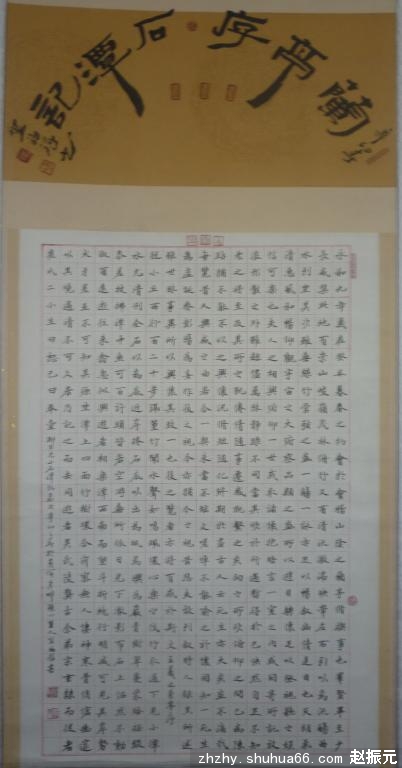 蘭亭序石潭記
永和九年歲在癸丑暮春之初會於會稽山陰之蘭亭脩稧事也羣賢畢至少
長咸集此地有崇山峻嶺茂林脩竹又有清流激湍映帶左右引以為流觴曲
水列坐其次雖無絲竹管弦之盛一觴一詠亦足以暢敘幽情是日也天朗氣
清惠風和暢仰觀宇宙之大俯察品類之盛所以遊目騁懷足以極視聽之娛
信可樂也夫人之相與俯仰一世或取諸懷抱晤言一室之內或因寄所託放
浪形骸之外雖趣舍萬殊靜躁不同當其欣於所遇暫得於己快然自足不知
老之將至及其所之既倦情隨事遷感慨係之矣向之所欣俛仰之間已為陳
跡猶不能不以之興懷況脩短隨化終期於盡古人云死生亦大矣豈不痛哉
每覽昔人興感之由若合一契未嘗不臨文嗟悼不能喻之於懷固知一死生
為虛誕齊彭殤為妄作後之視今亦猶今之視昔悲夫故列敘時人錄其所述
雖世殊事異所以興懷其致一也後之覽者亦將有感於斯文 王羲之蘭亭序
從小丘西行百二十步隔篁竹聞水聲如鳴珮環心樂之伐竹取道下見小潭
水尤清冽全石以為底近岸卷石底以出為坻為嶼為嵁為巖青樹翠蔓蒙絡搖綴
參差披拂潭中魚可百許頭皆若空游無所依日光下澈影布石上佁然不動
俶爾遠逝往來翕忽似與遊者相樂潭西南而望斗折蛇行明滅可見其岸勢
犬牙差互不可知其源坐潭上四面竹樹環合寂寥無人悽神寒骨悄愴幽邃
以其境過清不可久居乃記之而去同遊者吳武陵龔古余弟宗玄隸而從者
崔氏二小生曰恕己曰奉壹 柳宗元小石潭記
zhzhy.shuhua66.com 赵振元